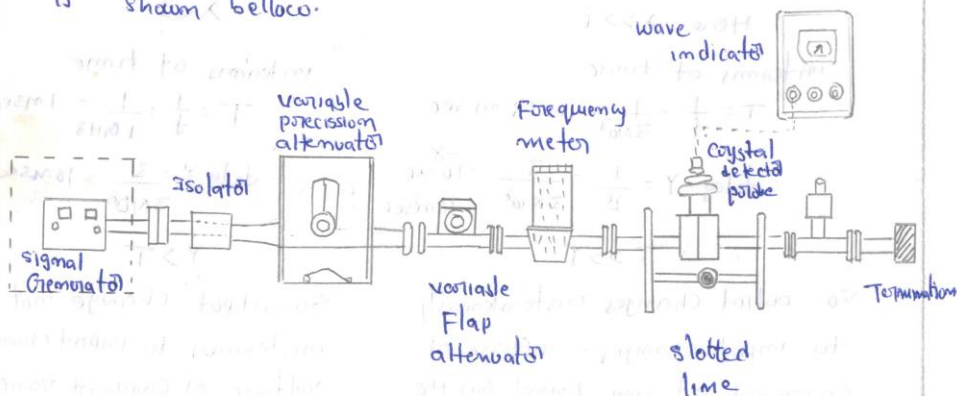 is shown belloco.
wave
indicator
variable
precission
attenuator
Forequency
meter
Isolator
Crystal
detector
probe
signal
Generator
variable
Flap
attenuator
slotted
line
Termination